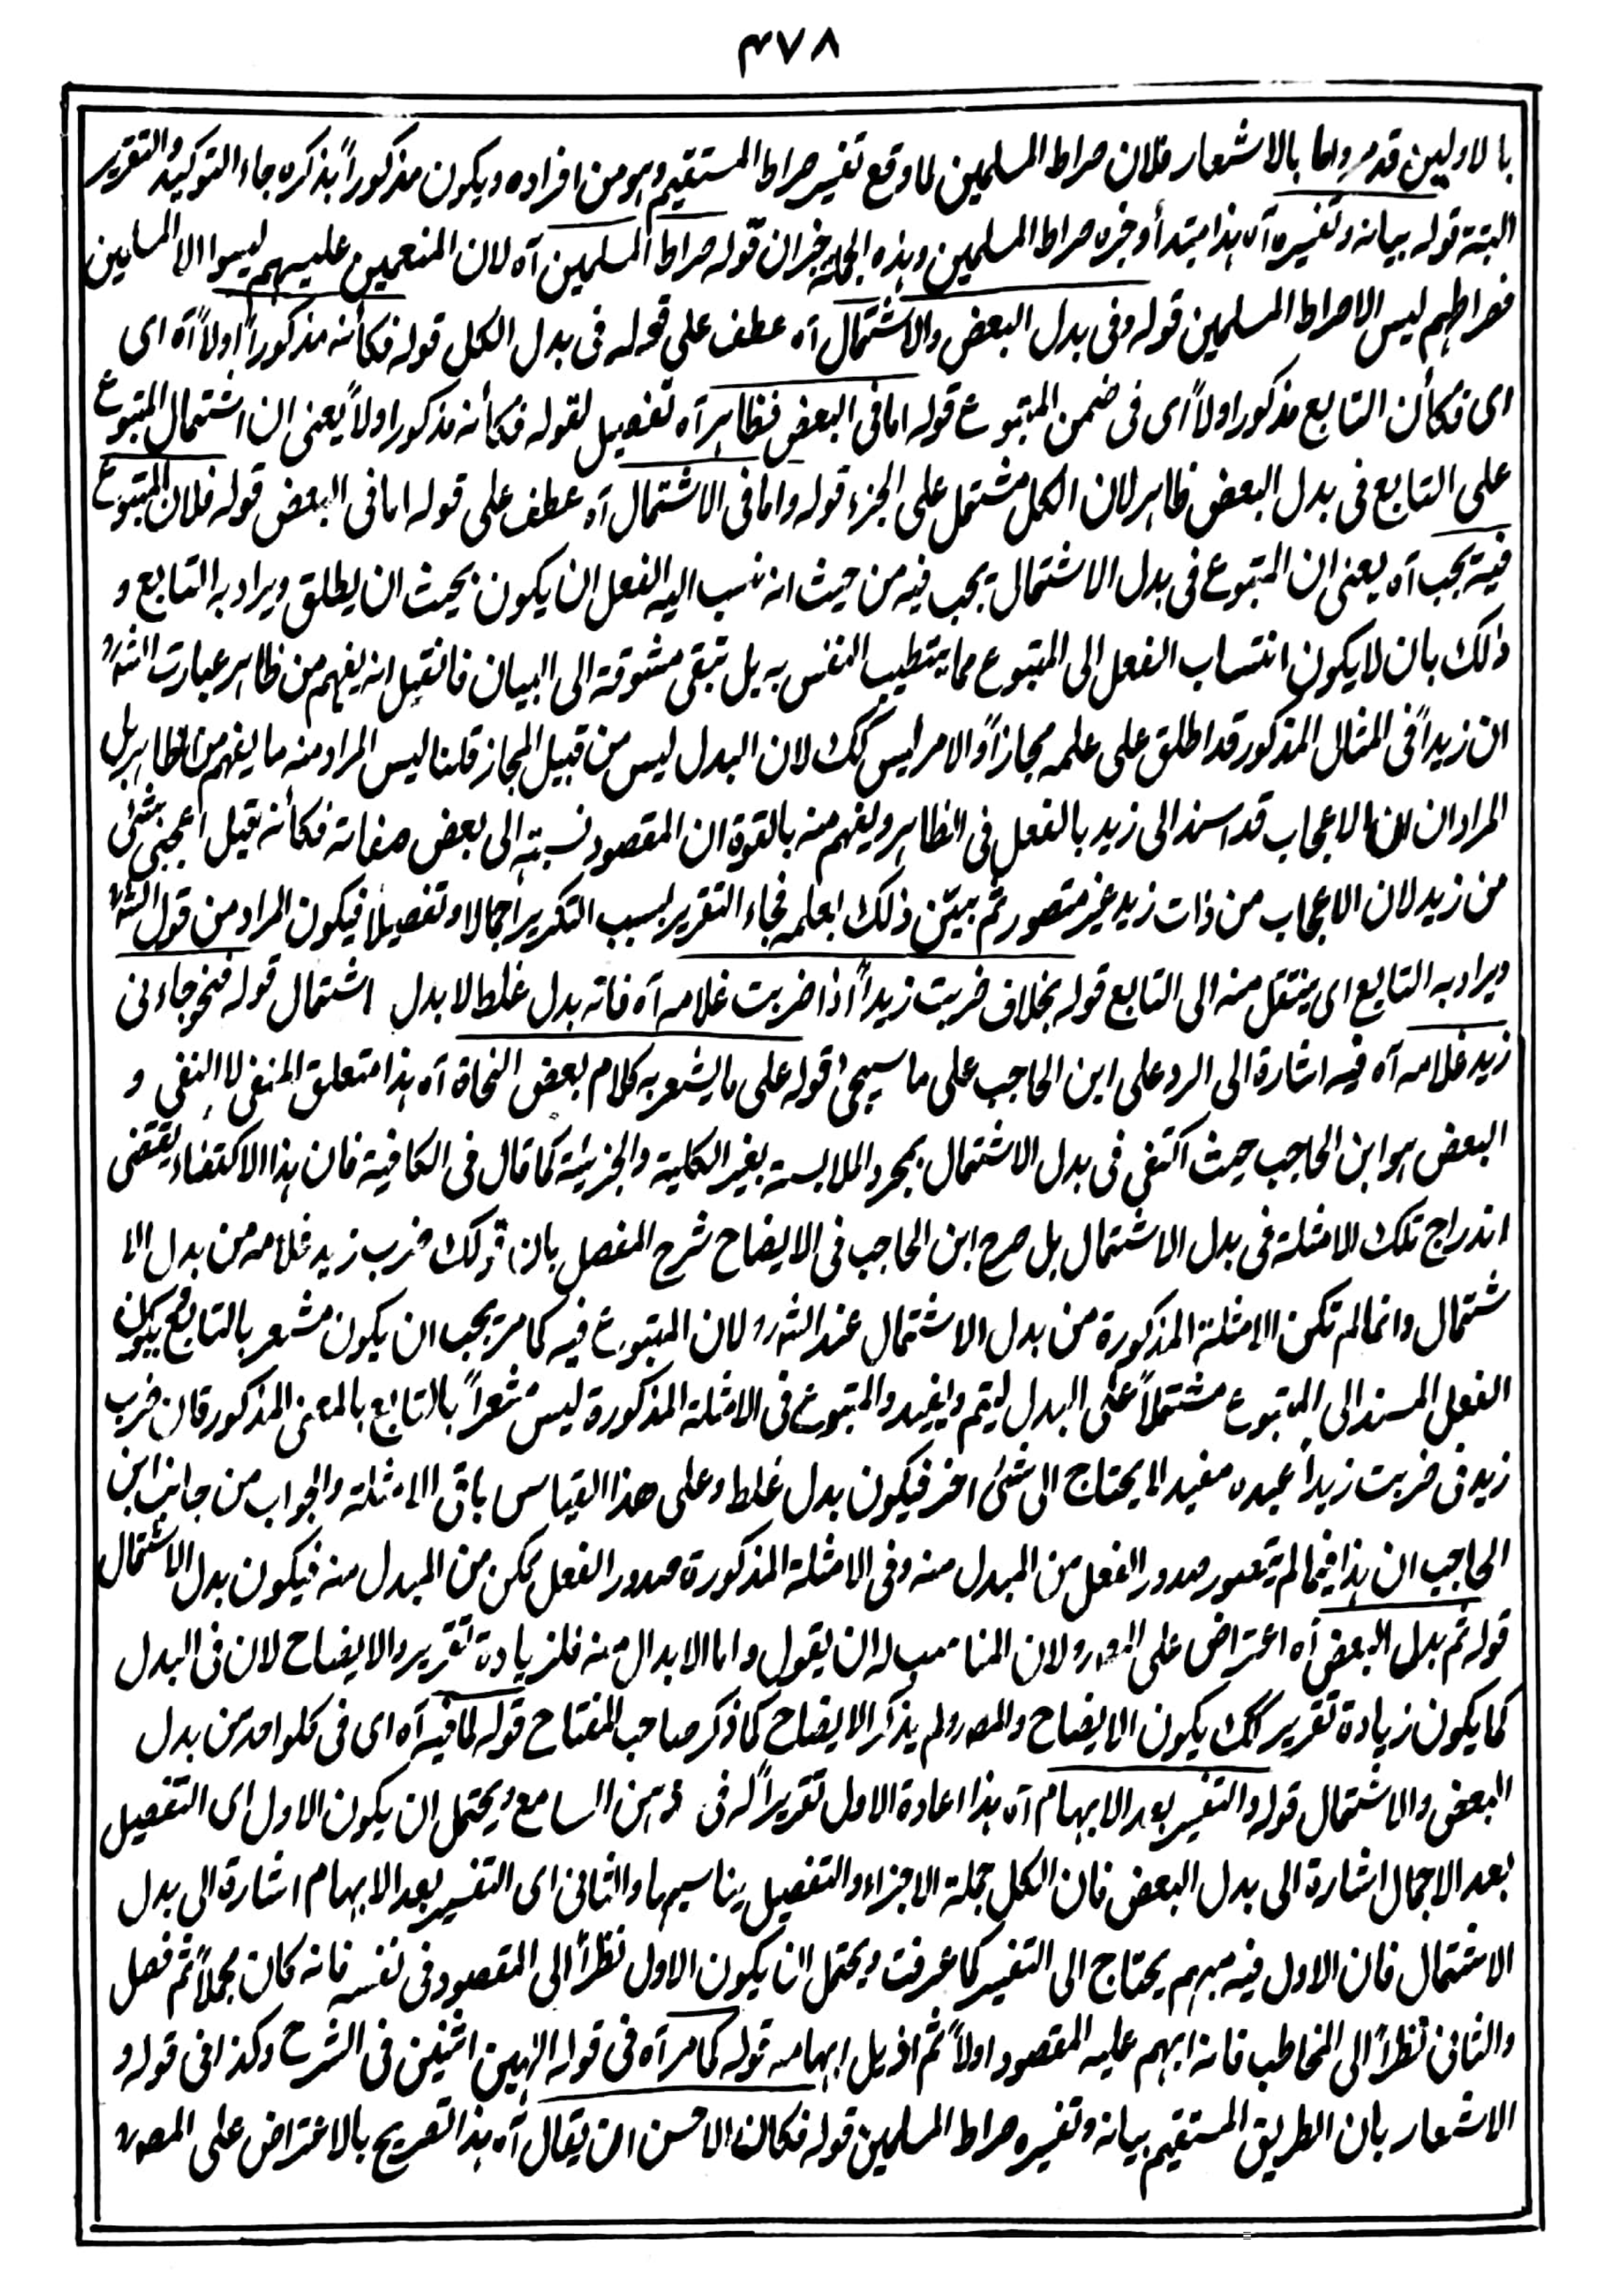 ٤٧٨
بالاولين قدم واما بالاشعار فلان صراط المسلمين لما وقع تفسير صراط المستقيم وهو من افراده ويكون مذكوراً بذكره جاء التوكيد والتقرير
البتة قوله بيانه وتفسيره آه هذا مبتدأ وخبره صراط المسلمين وهذه الجملة خبر ان قوله صراط المسلمين آه لان المنعمين عليهم ليسوا الا المسلمين
فصراطهم ليس الا صراط المسلمين قوله وفى بدل البعض والاشتمال آه عطف على قوله فى بدل الكل قوله فكأنه مذكوراً اولاً آه اى
اى فكأن التابع مذكورا اولاً اى فى ضمن المتبوع قوله اما فى البعض فظاهر آه تفصيل لقوله فكأنه مذكورا ولاً يعنى ان اشتمال المتبوع
على التابع فى بدل البعض ظاهر لان الكل مشتمل على الجزء قوله واما فى الاشتمال آه عطف على قوله اما فى البعض قوله فلان المتبوع
فيه يجب آه يعنى ان المتبوع فى بدل الاشتمال يجب فيه من حيث انه نسب اليه الفعل ان يكون بحيث ان يطلق ويراد به التابع و
ذلك بان لا يكون انتساب الفعل الى المتبوع مما يتطيب النفس به بل تبقى مشوقة الى البيان فان قيل انه يفهم من ظاهر عبارت الشرح
ان زيداً فى المثال المذكور قد اطلق على علمه مجازاً والامر ليس كك لان البدل ليس من قبيل المجاز قلنا ليس المراد منه ما يفهم من الظاهر بل
المراد ان الاعجاب قد اسند الى زيد بالفعل فى الظاهر ويفهم منه بالقوة ان المقصود نسبته الى بعض صفاته فكأنه قيل اعجبنى شئ
من زيد لان الاعجاب من ذات زيد غير متصور ثم بيّن ذلك بعلمه فجاء التقرير بسبب التكرير اجمالا وتفصيلاً فيكون المراد من قول الشرح
ويراد به التابع اى ينتقل منه الى التابع قوله بخلاف ضربت زيداً اذا ضربت غلامه آه فانه بدل غلط لا بدل اشتمال قوله فنحو جاءنى
زيد غلامه آه فيه اشارة الى الرد على ابن الحاجب على ما سيجئ قوله على ما يشعر به كلام بعض النحاة آه هذا متعلق المنفى لا النفى و
البعض هو ابن الحاجب حيث اكتفى فى بدل الاشتمال بمجرد الملابسة بغير الكلية والجزئية كما قال فى الكافية فان هذا الاكتفاء يقتضى
اندراج تلك الامثلة فى بدل الاشتمال بل صرح ابن الحاجب فى الايضاح شرح المفصل بان قولك ضرب زيد غلامه من بدل الا
شتمال وانما لم تكن الامثلة المذكورة من بدل الاشتمال عند الشرح لان المتبوع فيه كما مر يجب ان يكون مشعر بالتابع فيكون
الفعل المسند الى المتبوع مشتملاً على البدل ليتم ويفيد والمتبوع فى الامثلة المذكورة ليس مشعراً بالتابع بالمعنى المذكور فان ضرب
زيد فى ضربت زيداً عبده مفيد لا يحتاج الى شئ اخر فيكون بدل غلط وعلى هذا القياس باقى الامثلة والجواب من جانب ابن
الحاجب ان هذا فيما لم يتصور صدور الفعل من المبدل منه وفى الامثلة المذكورة صدور الفعل ممكن من المبدل منه فيكون بدل الاشتمال
قوله ثم بدل البعض آه اعتراض على المصر ولان المناسب له ان يقول واما الابدال منه فلزيادة تقرير والايضاح لان فى البدل
كما يكون زيادة تقرير كك يكون الايضاح والمصر ولم يذكر الايضاح كما ذكر صاحب المفتاح قوله لما فيه آه اى فى كلواحد من بدل
البعض والاشتمال قوله والتفسير بعد الابهام آه هذا اعادة الاول تقريراً له فى ذهن السامع ويحتمل ان يكون الاول اى التفصيل
بعد الاجمال اشارة الى بدل البعض فان الكل جملة الاجزاء والتفصيل يناسبها والثانى اى التفسير بعد الابهام اشارة الى بدل
الاشتمال فان الاول فيه مبهم يحتاج الى التفسير كما عرفت ويحتمل ان يكون الاول نظراً الى المقصود فى نفسه فانه كان مجملاً ثم فصل
والثانى نظراً الى المخاطب فانه ابهم عليه المقصود اولاً ثم ازيل ابهامه قوله كما مر آه فى قوله الهين اثنين فى الشرح وكذا فى قوله و
الاشعار بان الطريق المستقيم بيانه وتفسيره صراط المسلمين قوله فكان الاحسن ان يقال آه هذا تصريح بالاعتراض على المصر